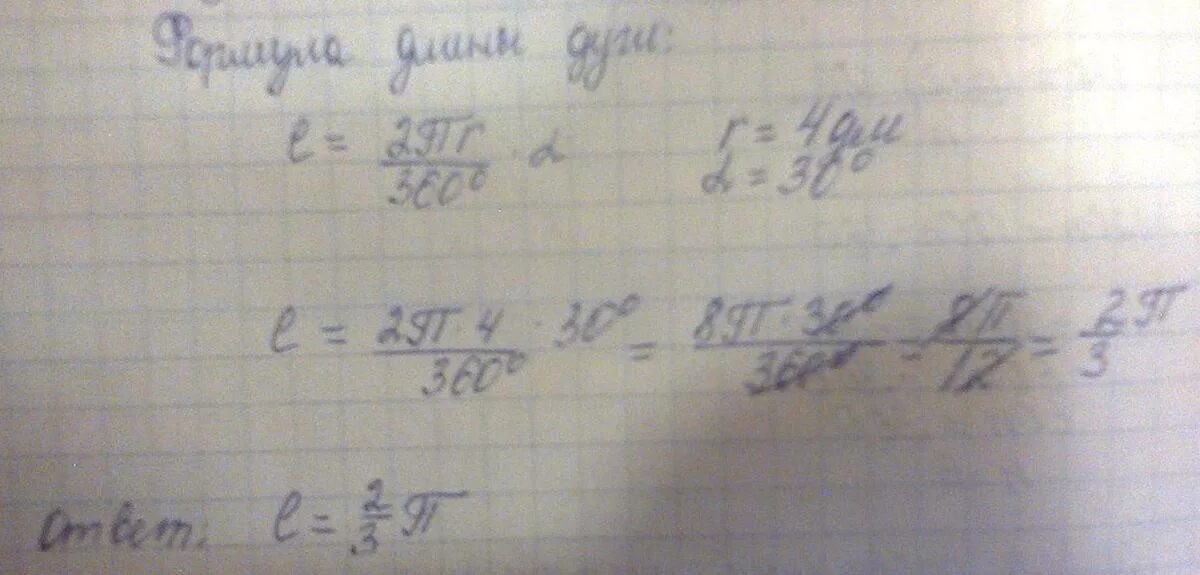 Формула длины дуги:
l = 2πr/360° · α r = 4дм
α = 30°
l = 2π·4/360° · 30° = 8π·30°/360° = 8π/12 = 2π/3
Ответ: l = 2/3 π